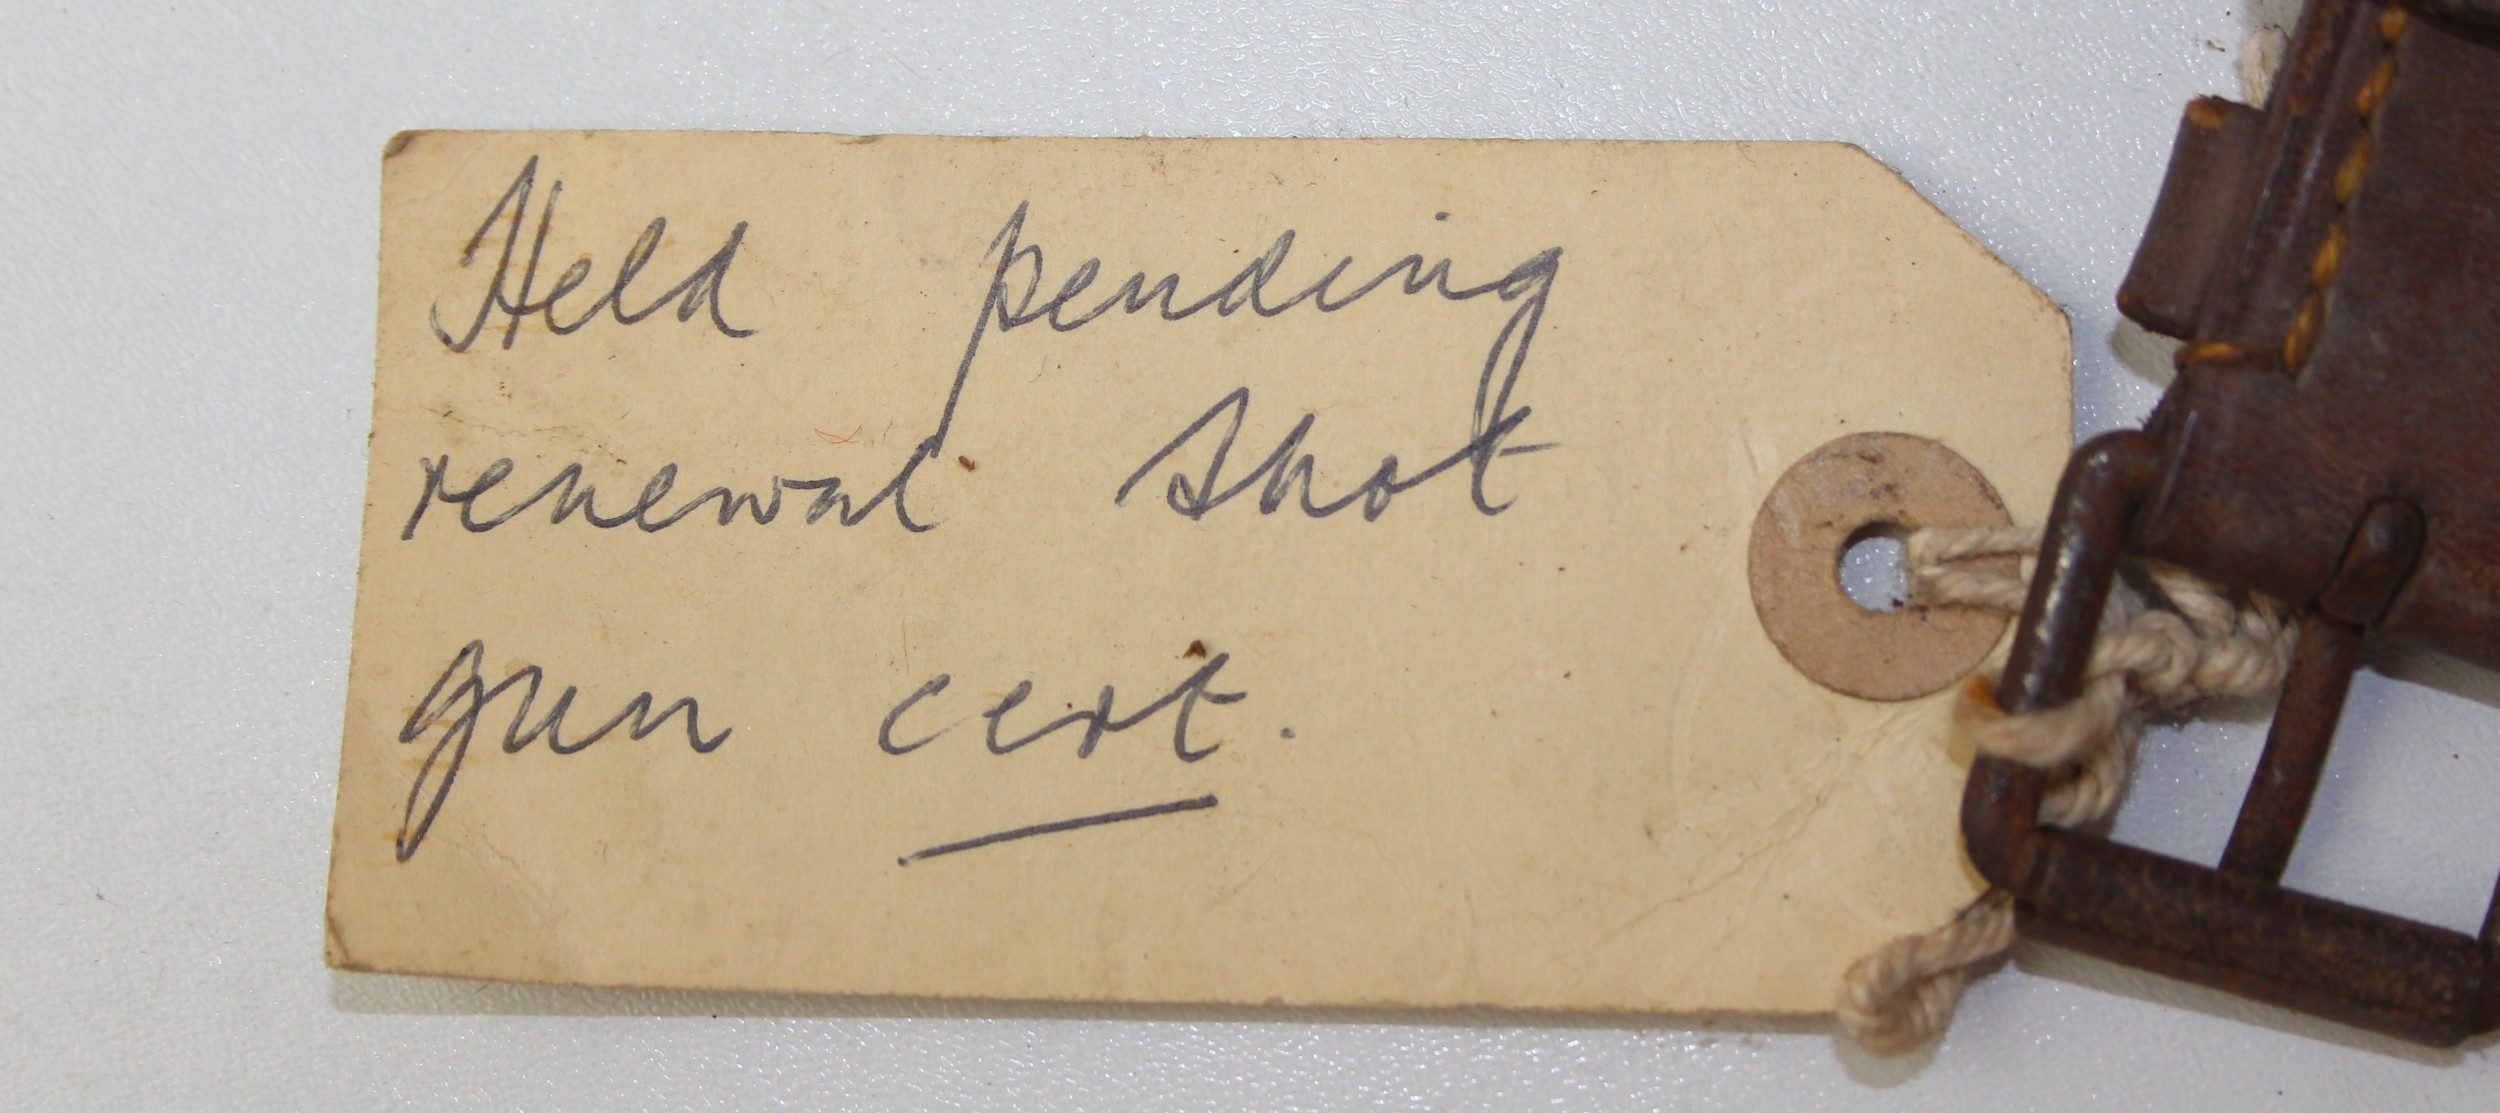 Held pending
renewal Shot
gun cert.